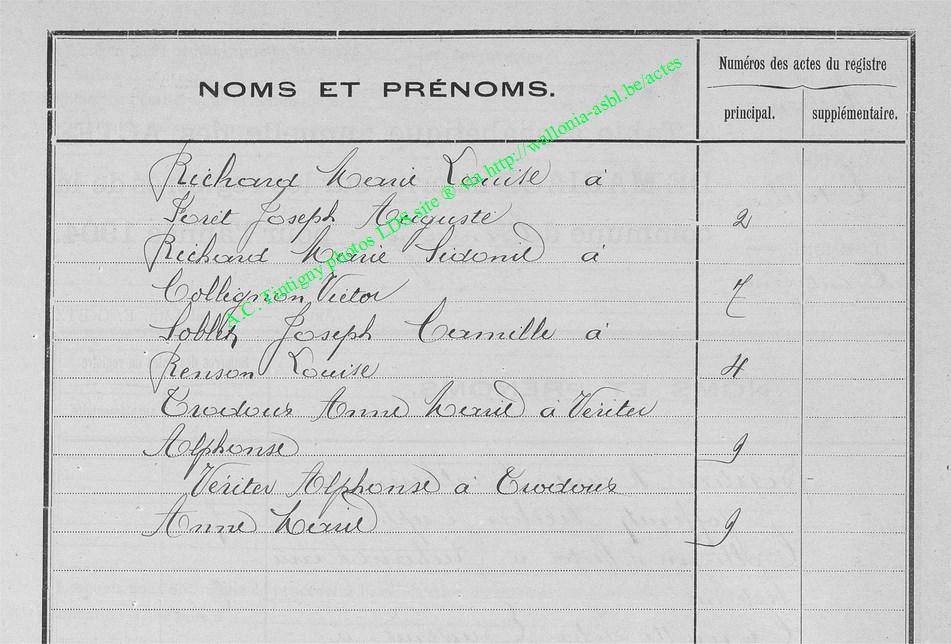 NOMS ET PRÉNOMS.
Numéros des actes du registre
principal.
supplémentaire.
A.C. Tintigny photos LDS site ® via http://wallonia-asbl.be/actes
Richard Marie Louise à
Foret Joseph Auguste 2
Richard Marie Sidonie à
Collignon Victor 7
Soblet Joseph Camille à
Renson Louise 4
Trodoux Anne Marie à Vériter
Alphonse 9
Vériter Alphonse à Trodoux
Anne Marie 9